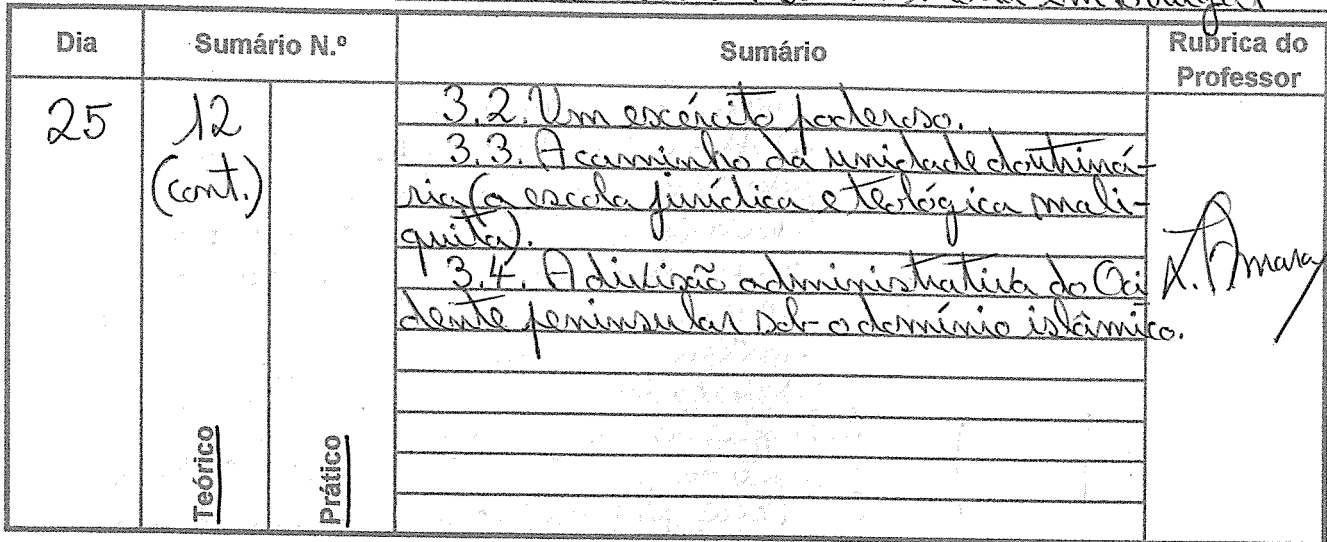 Dia
Sumário N.º
Sumário
Rubrica do
Professor
25
12
(cont.)
3.2. Um exército poderoso.
3.3. A caminho da unidade doutriná-
ria (a escola jurídica e teológica mali-
quita).
3.4. A divisão administrativa do Oci
dente peninsular sob o domínio islâmico.
Teórico
Prático